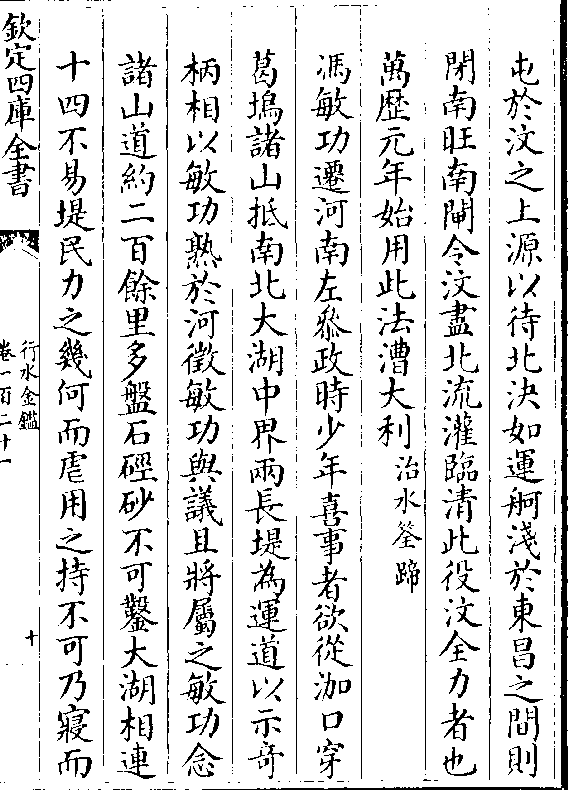 屯於汶之上源以待北決如運舸淺於東昌之間則
閉南旺南閘令汶盡北流灌臨清此役汶全力者也
萬歴元年始用此法漕大利治水筌蹄
馮敏功遷河南左叅政時少年喜事者欲從泇口穿
葛塢諸山抵南北大湖中界兩長堤為運道以示竒
柄相以敏功熟於河徵敏功與議且將屬之敏功念
諸山道約二百餘里多盤石硜砂不可鑿大湖相連
十四不易堤民力之幾何而虐用之持不可乃寢而
欽定四庫全書
行水金鑑
卷一百二十一
十